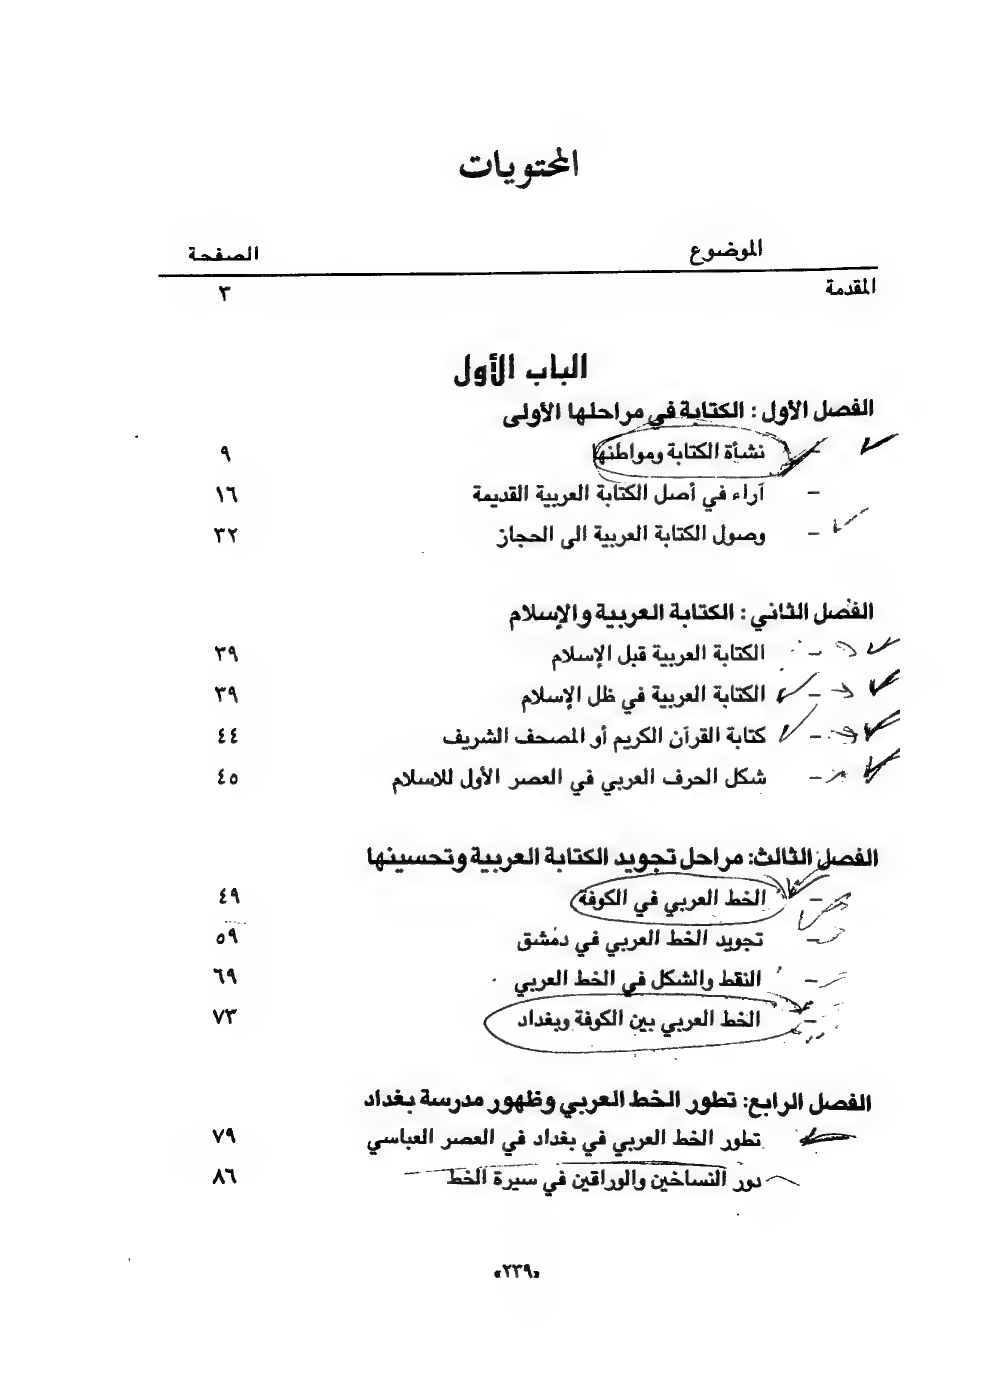 المحتويات
الموضوع الصفحة
المقدمة ٣
الباب الأول
الفصل الأول : الكتابة في مراحلها الأولى
نشأة الكتابة ومواطنها ٩
– آراء في أصل الكتابة العربية القديمة ١٦
– وصول الكتابة العربية الى الحجاز ٣٢
الفصل الثاني : الكتابة العربية والإسلام
– الكتابة العربية قبل الإسلام ٣٩
– الكتابة العربية في ظل الإسلام ٣٩
– كتابة القرآن الكريم أو المصحف الشريف ٤٤
– شكل الحرف العربي في العصر الأول للاسلام ٤٥
الفصل الثالث: مراحل تجويد الكتابة العربية وتحسينها
– الخط العربي في الكوفة ٤٩
– تجويد الخط العربي في دمشق ٥٩
– النقط والشكل في الخط العربي ٦٩
– الخط العربي بين الكوفة وبغداد ٧٣
الفصل الرابع: تطور الخط العربي وظهور مدرسة بغداد
تطور الخط العربي في بغداد في العصر العباسي ٧٩
دور النساخين والوراقين في سيرة الخط ٨٦
«٢٣٩»